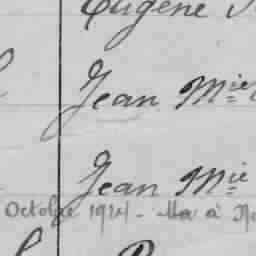 Eugène
Jean Mie
Jean Mie
Octobre 1914 - Mor à